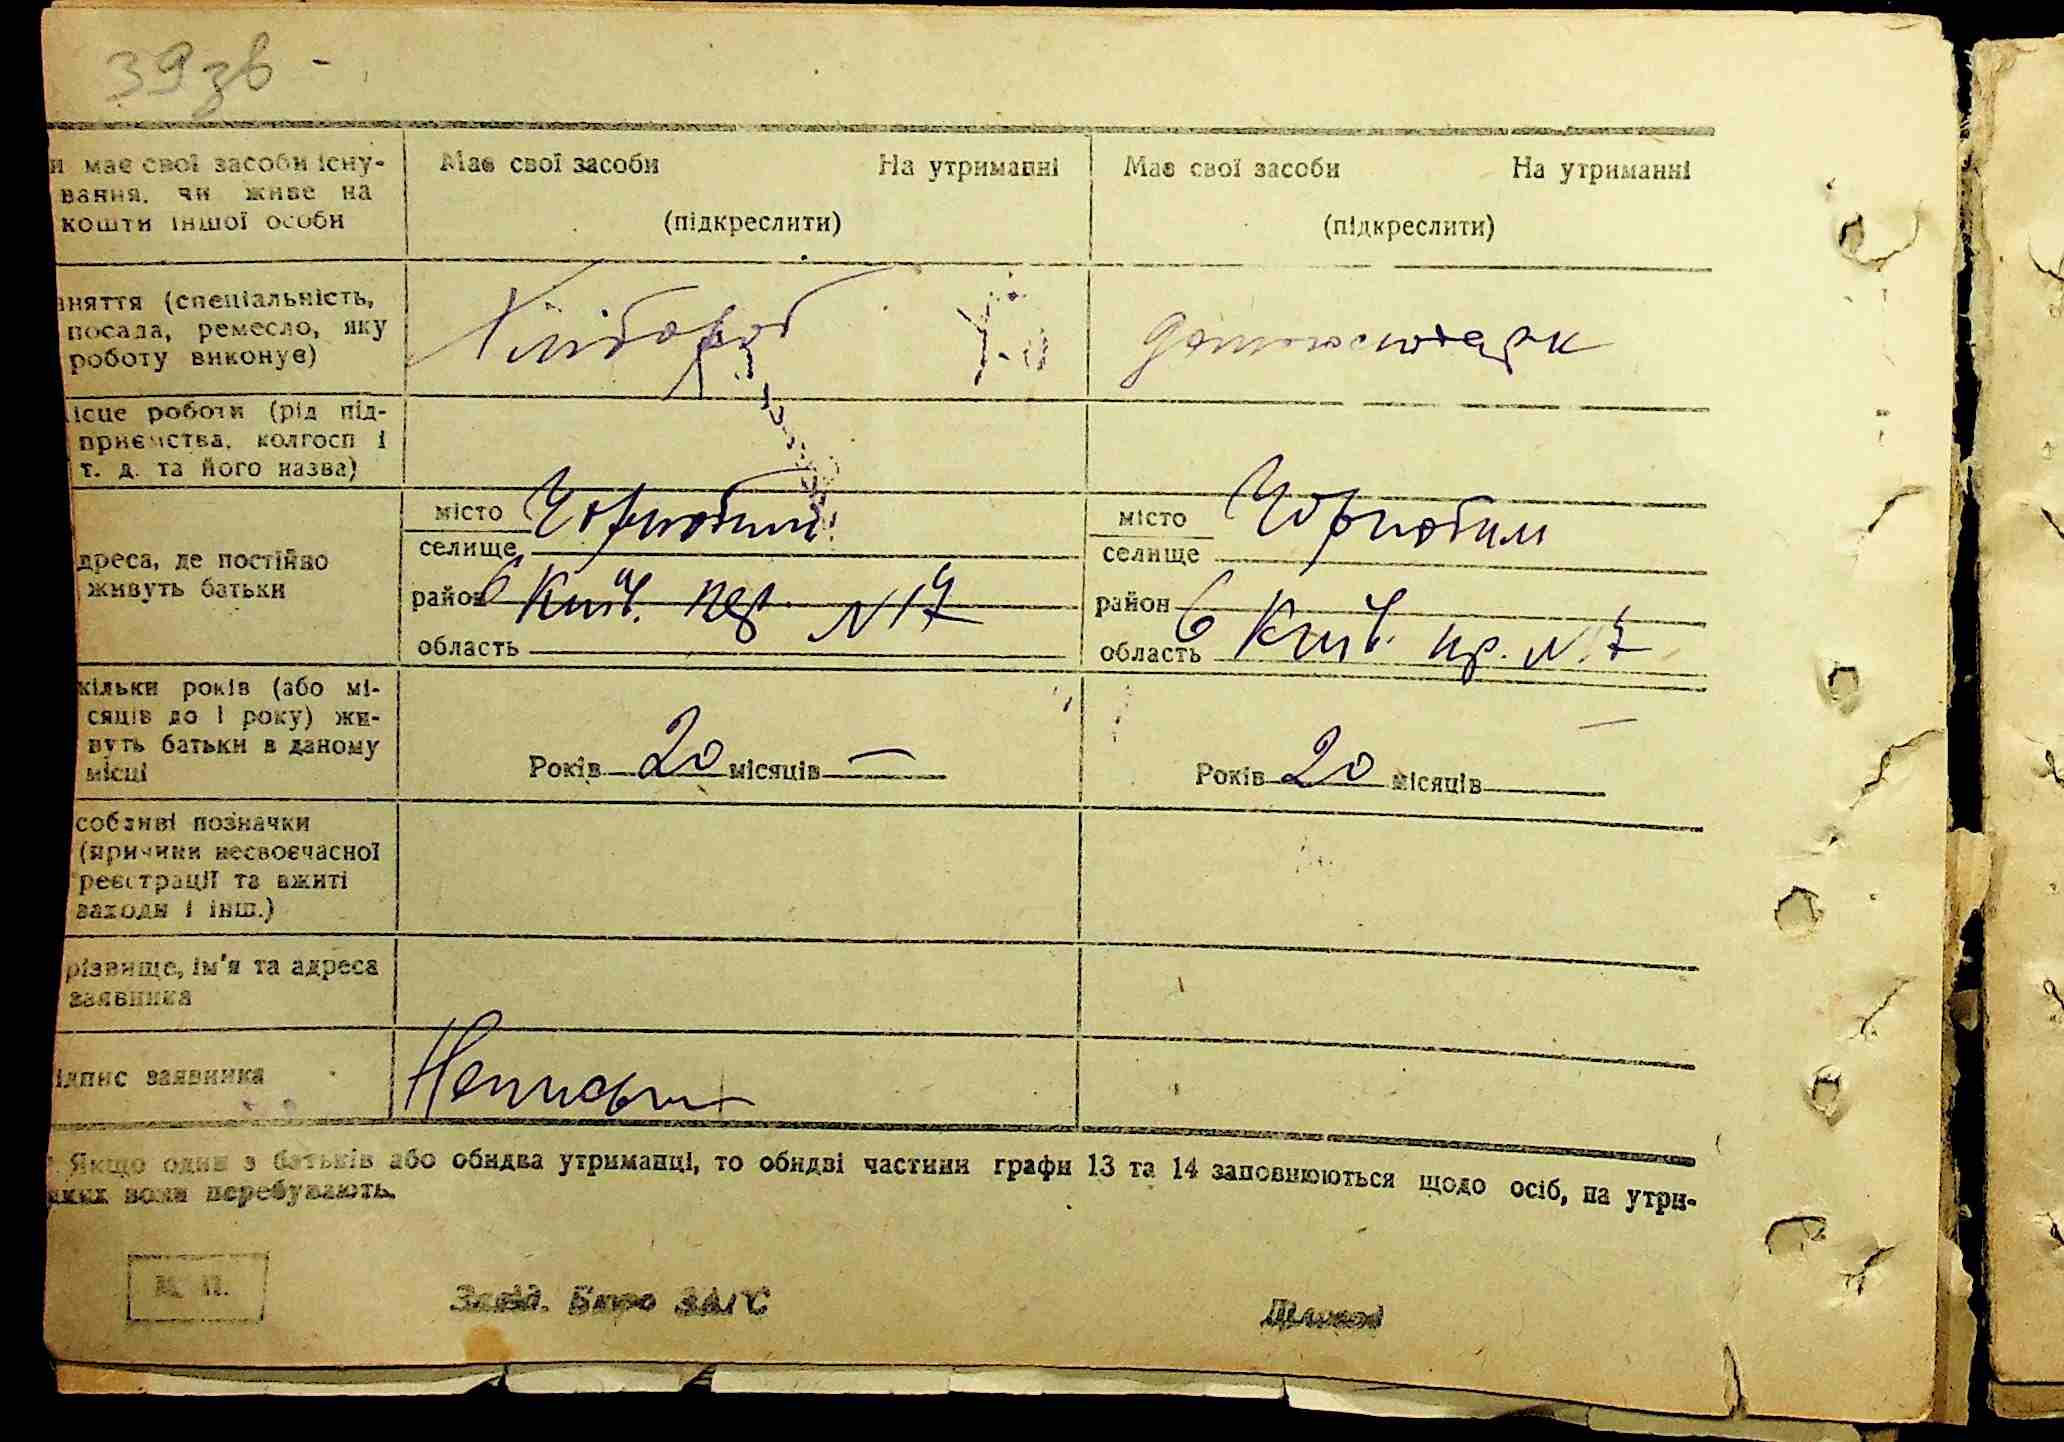 39зв -
и має свої засоби існу-
вання, чи живе на
кошти іншої особи
Має свої засоби На утриманні
(підкреслити)
Має свої засоби На утриманні
(підкреслити)
аняття (спеціальність,
посада, ремесло, яку
роботу виконує)
Хлібороб
домогосподарк
ісце роботи (рід під-
приємства, колгосп і
т. д. та його назва)
дреса, де постійно
живуть батьки
місто Чорнобиль
селище
район 6 Київ. пер. N 17
область
місто Чорнобиль
селище
район 6 Київ. пр. N 17
область
кільки років (або мі-
сяців до 1 року) жи-
вуть батьки в даному
місці
Років 20 місяців —
Років 20 місяців
собливі позначки
(причини несвоєчасної
реєстрації та вжиті
заходи і інш.)
різвище, ім'я та адреса
заявника
ідпис заявника
. Якщо один з батьків або обидва утриманці, то обидві частини графи 13 та 14 заповнюються щодо осіб, на утри-
яких вони перебувають.
М. П.
Завід. Бюро ЗАГС